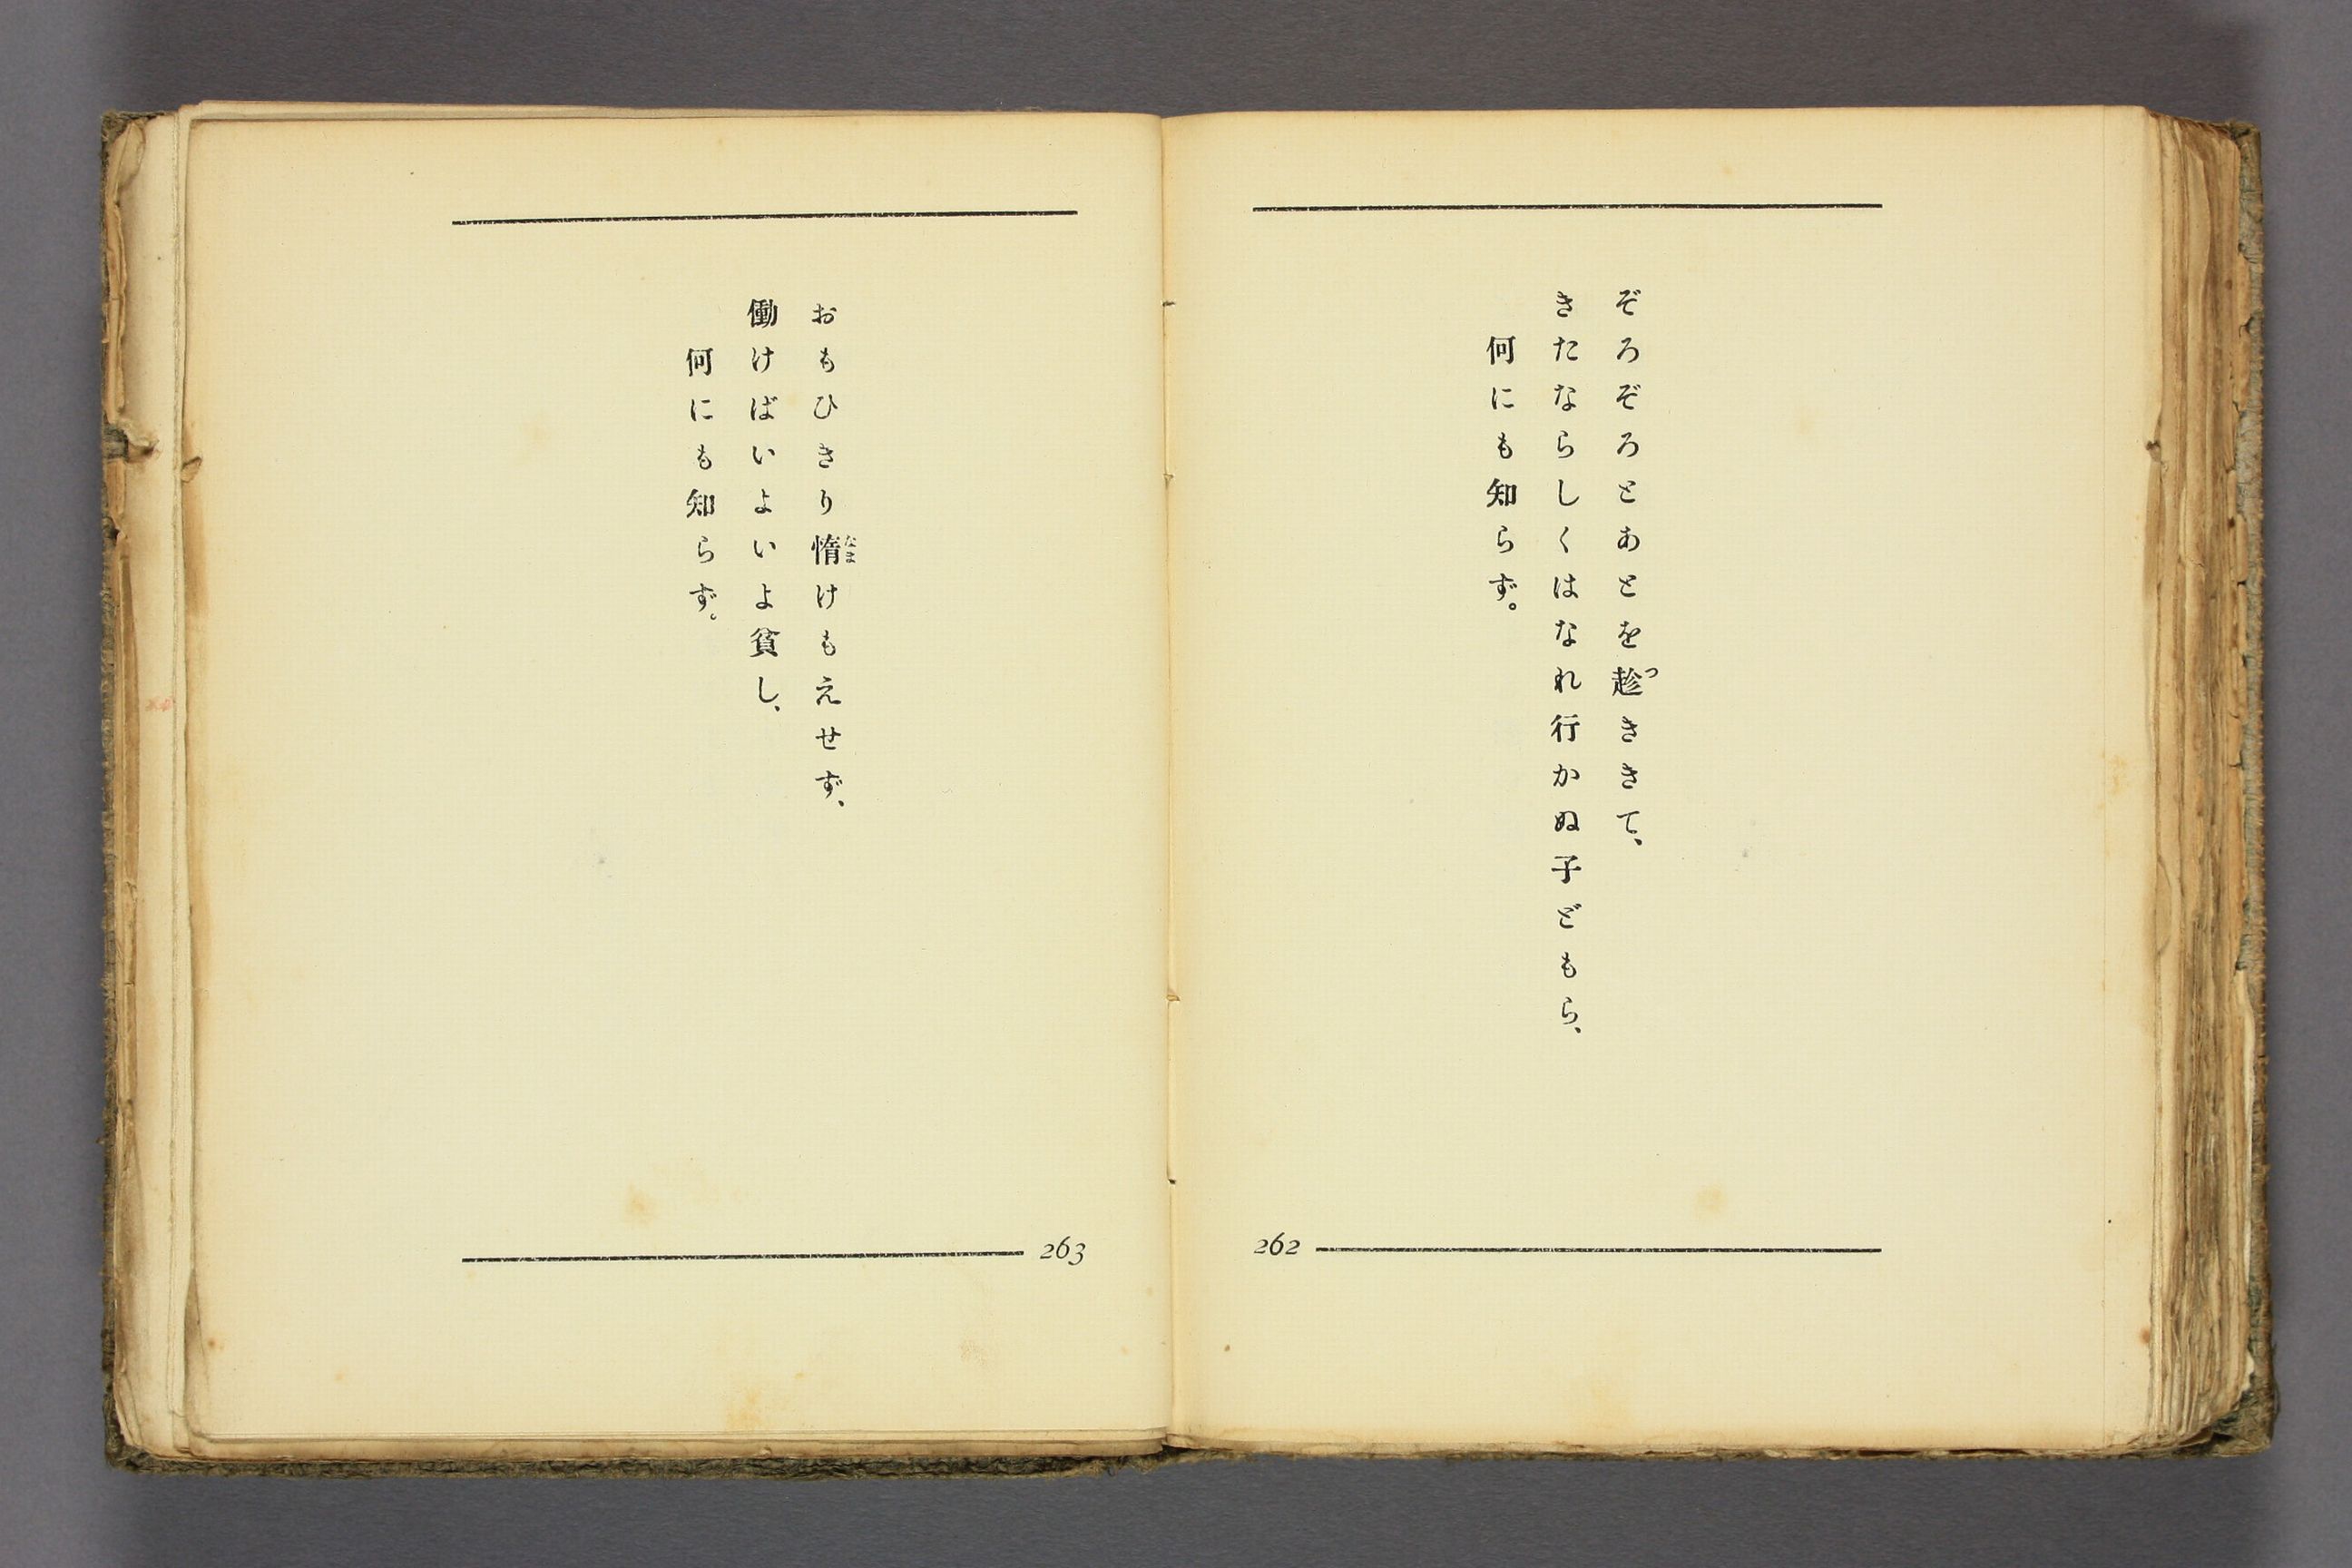 ぞろぞろとあとを趁ききて、
きたならしくはなれ行かぬ子どもら、
何にも知らず。
262
おもひきり惰けもえせず、
働けばいよいよ貧し、
何にも知らず。
263